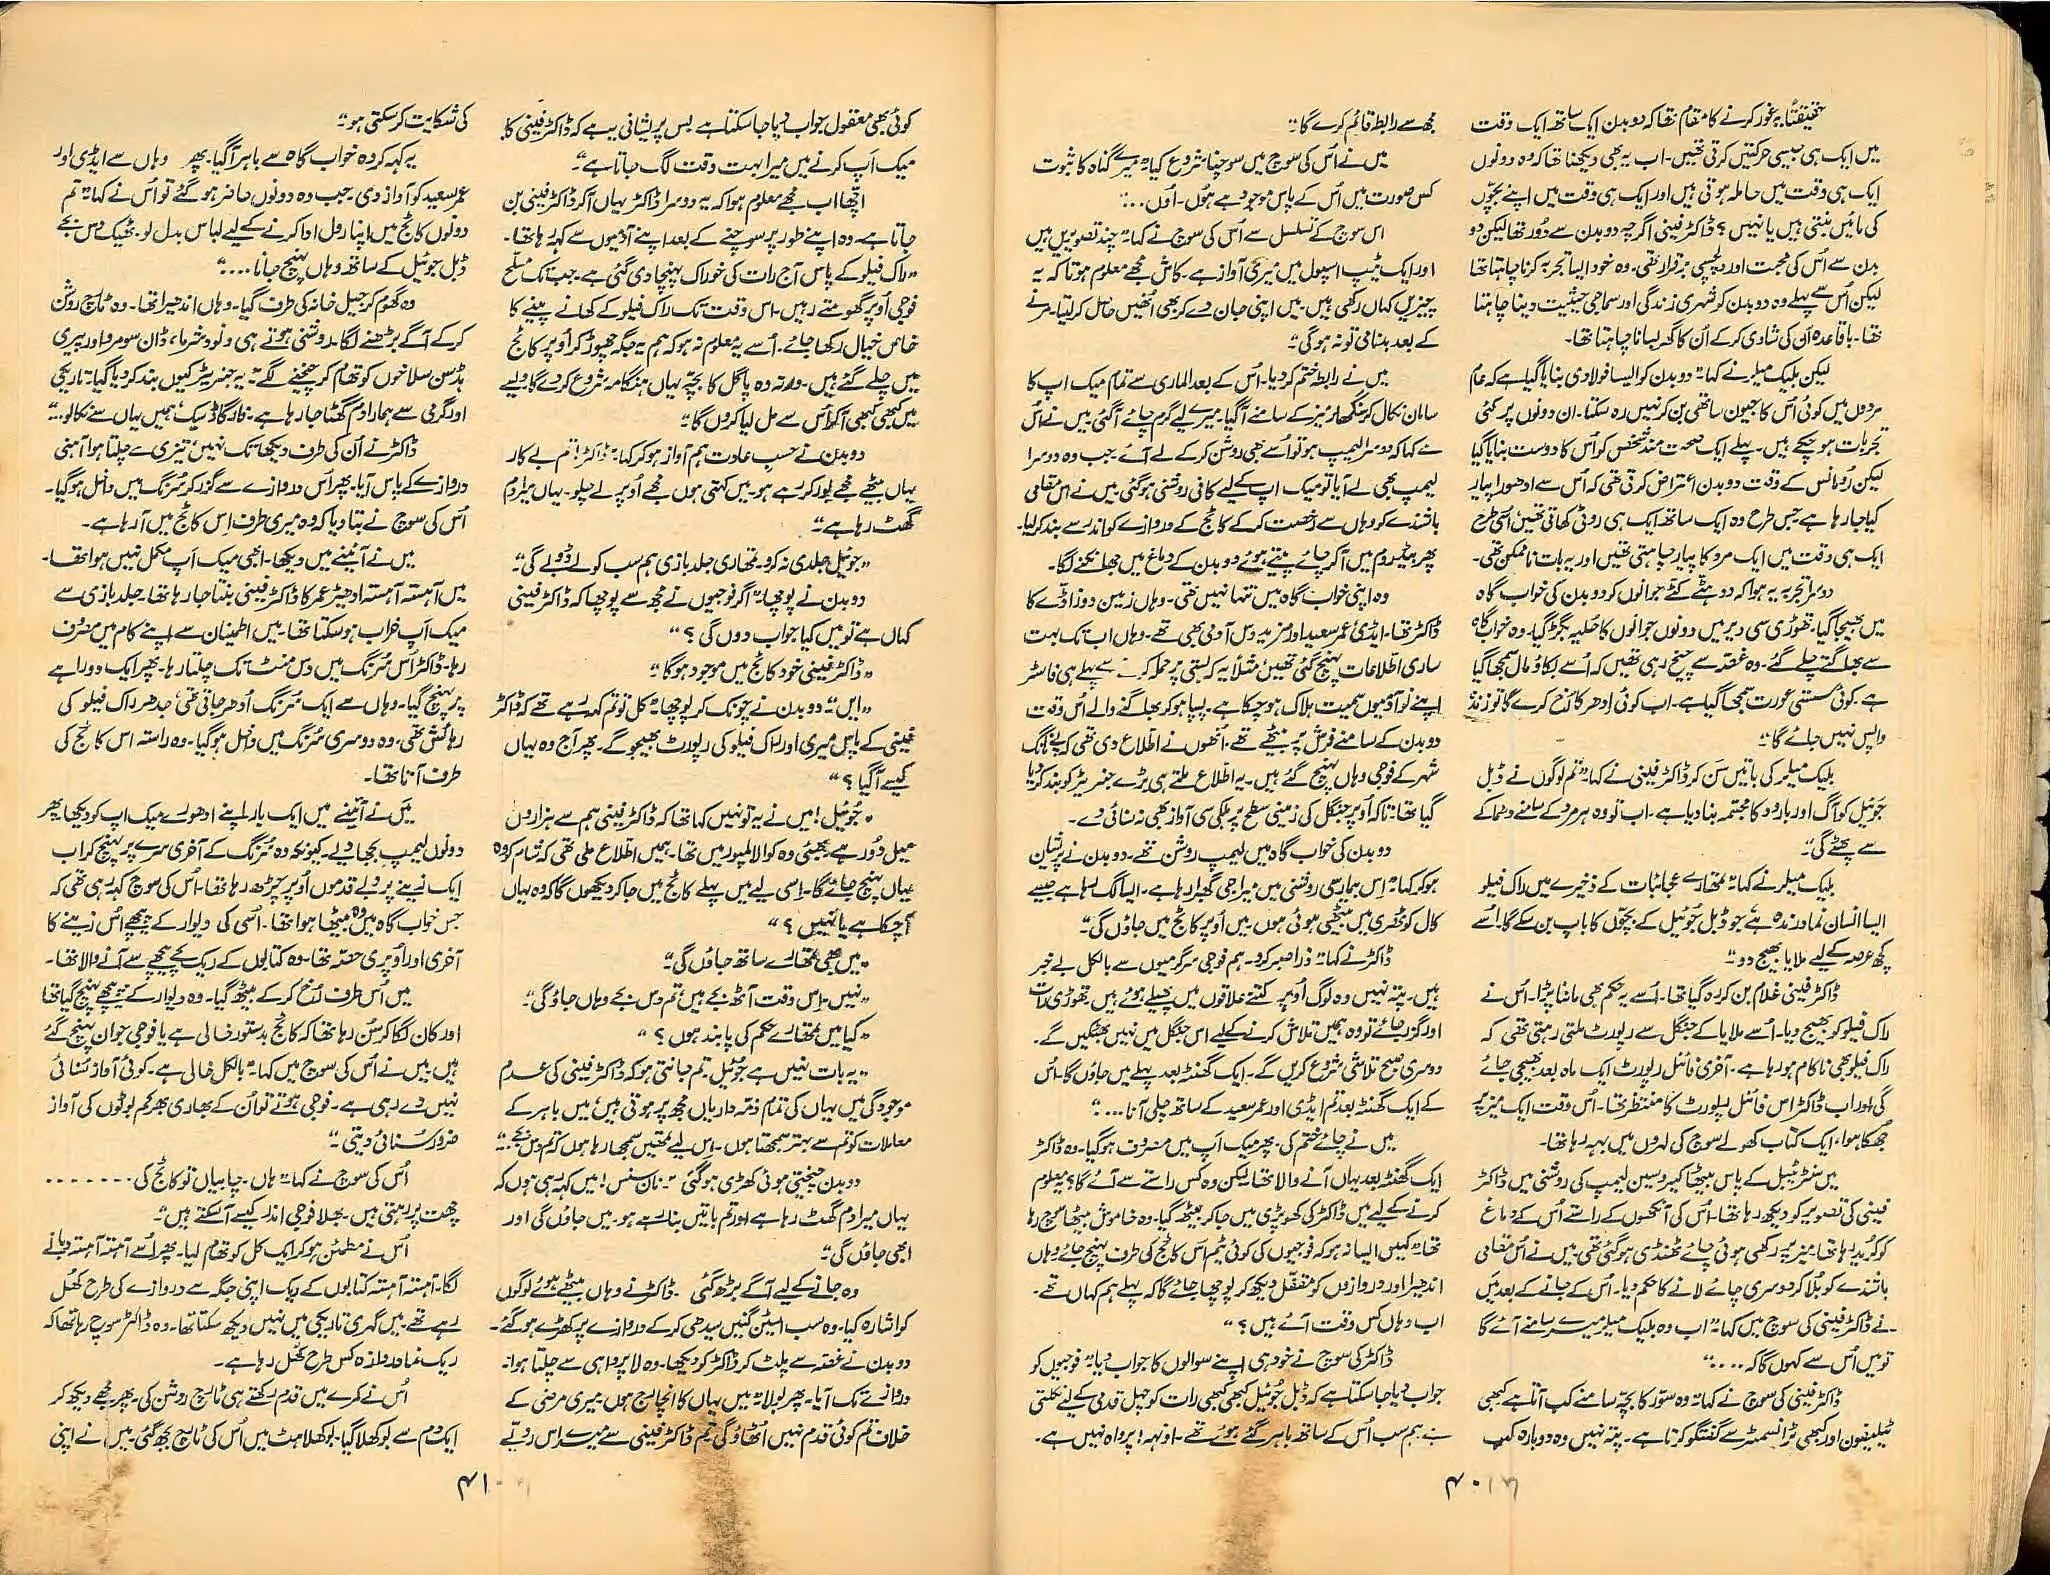 حقیقتاً یہ غور کرنے کا مقام تھا کہ دو بدن ایک ساتھ ایک وقت
میں ایک ہی جیسی حرکتیں کرتی تھیں۔ اب یہ بھی دیکھنا تھا کہ وہ دونوں
ایک ہی وقت میں حاملہ ہوتی ہیں اور ایک ہی وقت میں اپنے بچوں
کی مائیں بنتی ہیں یا نہیں؟ ڈاکٹر فینی اگرچہ دو بدن سے دُور تھا لیکن دو
بدن سے اُس کی محبت اور دلچسپی برقرار تھی۔ وہ خود ایسا تجربہ کرنا چاہتا تھا
لیکن اُس سے پہلے وہ دو بدن کو شہری زندگی اور سماجی حیثیت دینا چاہتا
تھا۔ باقاعدہ ان کی شادی کر کے اُن کا گھر بسانا چاہتا تھا۔
لیکن بلیک میلر نے کہا "دو بدن کو ایسا فولادی بنایا گیا ہے کہ عام
مردوں میں کوئی اُس کا جیون ساتھی بن کر نہیں رہ سکتا۔ ان دونوں پر کئی
تجربات ہو چکے ہیں۔ پہلے ایک صحت مند شخص کو اُس کا دوست بنایا گیا
لیکن رُومانس کے وقت دو بدن اعتراض کرتی تھی کہ اُس سے ادھورا پیار
کیا جا رہا ہے۔ جس طرح وہ ایک ساتھ ایک ہی روٹی کھاتی تھیں اُسی طرح
ایک ہی وقت میں ایک مرد کا پیار چاہتی تھیں اور یہ بات ناممکن تھی۔
دوسرا تجربہ یہ ہوا کہ دو ہٹے کٹے جوانوں کو دو بدن کی خواب گاہ
میں بھیجا گیا۔ تھوڑی سی دیر میں دونوں جوانوں کا حلیہ بگڑ گیا۔ وہ خواب گاہ
سے بھاگتے چلے گئے۔ وہ غصہ سے چیخ رہی تھیں کہ اُسے بکاؤ مال سمجھا گیا
ہے۔ کوئی سستی عورت سمجھا گیا ہے۔ اب کوئی اِدھر کا رُخ کرے گا تو زندہ
واپس نہیں جائے گا"۔
بلیک میلر کی باتیں سُن کر ڈاکٹر فینی نے کہا "تم لوگوں نے ڈبل
جوئیل کو آگ اور بارود کا مجسّمہ بنا دیا ہے۔ اب تو وہ ہر مرد کے سامنے دھماکے
سے پھٹے گی"۔
بلیک میلر نے کہا "تمھارے عجائبات کے ذخیرے میں راک فیلو
ایسا انسان نما درندہ ہے جو ڈبل جوئیل کے بچوں کا باپ بن سکے گا۔ اُسے
کچھ عرصہ کے لیے ملایا بھیج دو"۔
ڈاکٹر فینی غلام بن کر رہ گیا تھا۔ اُسے یہ حکم بھی ماننا پڑا۔ اُس نے
راک فیلو کو بھیج دیا۔ اُسے ملایا کے جنگل سے رپورٹ ملتی رہتی تھی کہ
راک فیلو بھی ناکام ہو رہا ہے۔ آخری فائنل رپورٹ ایک ماہ بعد بھیجی جائے
گی اور اب ڈاکٹر اس فائنل رپورٹ کا منتظر تھا۔ اُس وقت ایک میز پر
جھکا ہوا، ایک کتاب کھولے سوچ کی لہروں میں بہہ رہا تھا۔
میں سنٹر ٹیبل کے پاس بیٹھا کیروسین لیمپ کی روشنی میں ڈاکٹر
فینی کی تصویر کو دیکھ رہا تھا۔ اُس کی آنکھوں کے راستے اُس کے دماغ
کو کرید رہا تھا۔ میز پر رکھی ہوئی چائے ٹھنڈی ہو گئی تھی۔ میں نے اُس مقامی
باشندے کو بُلا کر دوسری چائے لانے کا حکم دیا۔ اُس کے جانے کے بعد میں
نے ڈاکٹر فینی کی سوچ میں کہا "اب وہ بلیک میلر میرے سامنے آئے گا
تو میں اُس سے کہوں گا کہ ...."
ڈاکٹر فینی کی سوچ نے کہا "وہ سؤر کا بچہ سامنے کب آتا ہے کبھی
ٹیلیفون اور کبھی ٹرانسمٹر سے گفتگو کرتا ہے۔ پتہ نہیں وہ دوبارہ کب
مجھ سے رابطہ قائم کرے گا"۔
میں نے اُس کی سوچ میں سوچنا شروع کیا "میرے گناہ کا ثبوت
کس صورت میں اُس کے پاس موجود ہے ہُوں۔ اُوں ...."
اس سوچ کے تسلسل سے اُس کی سوچ نے کہا "چند تصویریں ہیں
اور ایک ٹیپ اسپول میں میری آواز ہے۔ کاش مجھے معلوم ہوتا کہ یہ
چیزیں کہاں رکھی ہیں۔ میں اپنی جان دے کر بھی اُنھیں حاصل کر لیتا۔ مرنے
کے بعد بدنامی تو نہ ہو گی"۔
میں نے رابطہ ختم کر دیا۔ اُس کے بعد الماری سے تمام میک اپ کا
سامان نکال کر سنگھار میز کے سامنے آ گیا۔ میرے لیے گرم چائے آ گئی۔ میں نے اُس
سے کہا کہ دوسرا لیمپ ہو تو اُسے بھی روشن کر کے لے آئے۔ جب وہ دوسرا
لیمپ بھی لے آیا تو میک اپ کے لیے کافی روشنی ہو گئی۔ میں نے اُس مقامی
باشندے کو وہاں سے رخصت کر کے کاٹج کے دروازے کو اندر سے بند کر لیا۔
پھر بیڈ روم میں آ کر چائے پیتے ہوئے دو بدن کے دماغ میں جھانکنے لگا۔
وہ اپنی خواب گاہ میں تنہا نہیں تھی۔ وہاں زمین دوز اڈے کا
ڈاکٹر تھا۔ ایڈی، عمر سعید اور مزید دس آدمی بھی تھے۔ وہاں اب تک بہت
ساری اطلاعات پہنچ گئی تھیں، مثلاً یہ کہ بستی پر حملہ کرنے سے پہلے ہی فاسٹر
اپنے نو آدمیوں سمیت ہلاک ہو چکا ہے۔ پسپا ہو کر بھاگنے والے اُس وقت
دو بدن کے سامنے فرش پر بیٹھے تھے۔ اُنھوں نے اطلاع دی تھی کہ پینانگ
شہر کے فوجی وہاں پہنچ گئے ہیں۔ یہ اطلاع ملتے ہی بڑے جنریٹر کو بند کر دیا
گیا تھا۔ تاکہ اُوپر جنگل کی زمینی سطح پر ہلکی سی آواز بھی نہ سنائی دے۔
دو بدن کی خواب گاہ میں لیمپ روشن تھے۔ دو بدن نے پریشان
ہو کر کہا "اس بیمار سی روشنی میں میرا جی گھبرا رہا ہے۔ ایسا لگ رہا ہے جیسے
کال کوٹھری میں بیٹھی ہوئی ہوں۔ میں اُوپر کاٹج میں جاؤں گی"۔
ڈاکٹر نے کہا "ذرا صبر کرو۔ ہم فوجی سرگرمیوں سے بالکل بے خبر
ہیں۔ پتہ نہیں وہ لوگ اُوپر کتنے علاقوں میں پھیلے ہوئے ہیں۔ تھوڑی رات
اور گزر جائے تو وہ ہمیں تلاش کرنے کیلیے اس جنگل میں نہیں بھٹکیں گے۔
دوسری صبح تلاشی شروع کریں گے۔ ایک گھنٹہ بعد پہلے میں جاؤں گا۔ اُس
کے ایک گھنٹہ بعد تم ایڈی اور عمر سعید کے ساتھ چلی آنا ...."
میں نے چائے ختم کی۔ پھر میک اَپ میں مصروف ہو گیا۔ وہ ڈاکٹر
ایک گھنٹہ بعد یہاں آنے والا تھا لیکن وہ کس راستے سے آئے گا؟ یہ معلوم
کرنے کے لیے میں ڈاکٹر کی کھوپڑی میں جا کر بیٹھ گیا۔ وہ خاموش بیٹھا سوچ رہا
تھا "کہیں ایسا نہ ہو کہ فوجیوں کی کوئی ٹیم اس کاٹج کی طرف پہنچ جائے وہاں
اندھیرا اور دروازوں کو مقفّل دیکھ کر پوچھا جائے گا کہ پہلے ہم کہاں تھے۔
اب وہاں کس وقت آئے ہیں؟"
ڈاکٹر کی سوچ نے خود ہی اپنے سوالوں کا جواب دیا "فوجیوں کو
جواب دیا جا سکتا ہے کہ ڈبل جوئیل کبھی کبھی رات کو چہل قدمی کے لیے نکلتی
ہے ہم سب اُس کے ساتھ باہر گئے ہوئے تھے۔ اونہہ! پرواہ نہیں ہے۔
۴۰
کوئی بھی معقول جواب دیا جا سکتا ہے بس پریشانی یہ ہے کہ ڈاکٹر فینی کا
میک اَپ کرنے میں میرا بہت وقت لگ جاتا ہے"۔
اچھا اب مجھے معلوم ہوا کہ یہ دوسرا ڈاکٹر یہاں آ کر ڈاکٹر فینی بن
جاتا ہے۔ وہ اپنے طور پر سوچنے کے بعد اپنے آدمیوں سے کہہ رہا تھا۔
"راک فیلو کے پاس آج رات کی خوراک پہنچا دی گئی ہے۔ جب تک مسلح
فوجی اُوپر گھومتے رہیں۔ اس وقت تک راک فیلو کے کھانے پینے کا
خاص خیال رکھا جائے۔ اُسے یہ معلوم نہ ہو کہ ہم یہ جگہ چھوڑ کر اُوپر کاٹج
میں چلے گئے ہیں۔ ورنہ وہ پاگل کا بچہ یہاں ہنگامہ شروع کر دے گا ویسے
میں کبھی کبھی آ کر اُس سے مل لیا کروں گا"۔
دو بدن نے حسبِ عادت ہم آواز ہو کر کہا "ڈاکٹر! تم بے کار
یہاں بیٹھے مجھے بور کر رہے ہو۔ میں کہتی ہوں مجھے اُوپر لے چلو۔ یہاں میرا دم
گھٹ رہا ہے"۔
"جوئیل جلدی نہ کرو۔ تمھاری جلد بازی ہم سب کو لے ڈوبے گی"۔
دو بدن نے پوچھا "اگر فوجیوں نے مجھ سے پوچھا کہ ڈاکٹر فینی
کہاں ہے تو میں کیا جواب دوں گی؟"
"ڈاکٹر فینی خود کاٹج میں موجود ہو گا"۔
"ایں" دو بدن نے چونک کر پوچھا "کل تو تم کہہ رہے تھے کہ ڈاکٹر
فینی کے پاس میری اور راک فیلو کی رپورٹ بھیجو گے۔ پھر آج وہ یہاں
کیسے آ گیا؟"
"جوئیل! میں نے یہ تو نہیں کہا تھا کہ ڈاکٹر فینی ہم سے ہزاروں
میل دُور ہے۔ بھئی وہ کوالالمپور میں تھا۔ ہمیں اطلاع ملی تھی کہ شام کو وہ
یہاں پہنچ جائے گا۔ اسی لیے میں پہلے کاٹج میں جا کر دیکھوں گا کہ وہ یہاں
آ چکا ہے یا نہیں؟"
"میں بھی تمھارے ساتھ جاؤں گی"۔
"نہیں۔ اِس وقت آٹھ بجے ہیں تم دس بجے وہاں جاؤ گی"۔
"کیا میں تمھارے حکم کی پابند ہوں؟"
"یہ بات نہیں ہے جوئیل۔ تم جانتی ہو کہ ڈاکٹر فینی کی عدم
موجودگی میں یہاں کی تمام ذمّہ داریاں مجھ پر ہوتی ہیں، میں باہر کے
معاملات کو تم سے بہتر سمجھتا ہوں۔ اِس لیے تمھیں سمجھا رہا ہوں کہ تم دس بجے"۔
دو بدن چیختی ہوئی کھڑی ہو گئی "نان سنس! میں کہہ رہی ہوں کہ
یہاں میرا دم گھٹ رہا ہے اور تم باتیں بنا رہے ہو۔ میں جاؤں گی اور
ابھی جاؤں گی"۔
وہ جانے کے لیے آگے بڑھ گئی۔ ڈاکٹر نے وہاں بیٹھے ہوئے لوگوں
کو اشارہ کیا۔ وہ سب اسٹین گنیں سیدھی کر کے دروازے پر کھڑے ہو گئے۔
دو بدن نے غصّہ سے پلٹ کر ڈاکٹر کو دیکھا۔ وہ لاپرواہی سے چلتا ہوا۔
دروازے تک آیا۔ پھر بولا "میں یہاں کا انچارج ہوں۔ میری مرضی کے
خلاف تم کوئی قدم نہیں اُٹھاؤ گی تم ڈاکٹر فینی سے میرے اس رویّے
کی شکایت کر سکتی ہو"۔
یہ کہہ کر وہ خواب گاہ سے باہر آ گیا۔ پھر وہاں سے ایڈی اور
عمر سعید کو آواز دی۔ جب وہ دونوں حاضر ہو گئے تو اُس نے کہا "تم
دونوں کاٹج میں اپنا رول ادا کرنے کے لیے لباس بدل لو۔ ٹھیک دس بجے
ڈبل جوئیل کے ساتھ وہاں پہنچ جانا ...."
وہ گھوم کر جیل خانہ کی طرف گیا۔ وہاں اندھیرا تھا۔ وہ ٹارچ روشن
کر کے آگے بڑھنے لگا۔ روشنی ہوتے ہی ونود شرما، ڈان سومرو اور پیری
ہڈسن سلاخوں کو تھام کر چیخنے لگے "یہ جنریٹر کیوں بند کر دیا گیا۔ تاریکی
اور گرمی سے ہمارا دم گھٹا جا رہا ہے۔ فار گاڈ سیک، ہمیں یہاں سے نکالو ..."
ڈاکٹر نے اُن کی طرف دیکھا تک نہیں، تیزی سے چلتا ہوا آہنی
دروازے کے پاس آیا۔ پھر اُس دروازے سے گزر کر سُرنگ میں داخل ہو گیا۔
اُس کی سوچ نے بتا دیا کہ وہ میری طرف اِس کاٹج میں آ رہا ہے۔
میں نے آئینے میں دیکھا۔ ابھی میک اَپ مکمل نہیں ہوا تھا۔
میں آہستہ آہستہ ادھیڑ عمر کا ڈاکٹر فینی بنتا جا رہا تھا۔ جلد بازی سے
میک اَپ خراب ہو سکتا تھا۔ میں اطمینان سے اپنے کام میں مصروف
رہا۔ ڈاکٹر اس سُرنگ میں دس منٹ تک چلتا رہا۔ پھر ایک دوراہے
پر پہنچ گیا۔ وہاں سے ایک سُرنگ اُدھر جاتی تھی، جدھر راک فیلو کی
رہائش تھی۔ وہ دوسری سُرنگ میں داخل ہو گیا۔ وہ راستہ اس کاٹج کی
طرف آتا تھا۔
میں نے آئینے میں ایک بار اپنے ادھورے میک اپ کو دیکھا پھر
دونوں لیمپ بجھا دیے۔ کیونکہ وہ سُرنگ کے آخری سرے پر پہنچ کر اب
ایک زینے پر دبے قدموں اُوپر چڑھ رہا تھا۔ اُس کی سوچ کہہ رہی تھی کہ
جس خواب گاہ میں وہ بیٹھا ہوا تھا۔ اُسی کی دیوار کے پیچھے اُس زینے کا
آخری اور اُوپری حصّہ تھا۔ وہ کتابوں کے ریک کے پیچھے سے آنے والا تھا۔
میں اُس طرف رُخ کر کے بیٹھ گیا۔ وہ دیوار کے پیچھے پہنچ گیا تھا
اور کان لگا کر سُن رہا تھا کہ کاٹج بدستور خالی ہے یا فوجی جوان پہنچ گئے
ہیں۔ میں نے اُس کی سوچ میں کہا "بالکل خالی ہے۔ کوئی آواز سُنائی
نہیں دے رہی ہے۔ فوجی ہوتے تو اُن کے بھاری بھر کم بوٹوں کی آواز
ضرور سُنائی دیتی"۔
اُس کی سوچ نے کہا "ہاں۔ چابیاں تو کاٹج کی .......
چھت پر رہتی ہیں۔ بھلا فوجی اندر کیسے آ سکتے ہیں"۔
اُس نے مطمئن ہو کر ایک کل کو تھام لیا۔ پھر اُسے آہستہ آہستہ دبانے
لگا۔ آہستہ آہستہ کتابوں کے ریک اپنی جگہ سے دروازے کی طرح کھُل
رہے تھے۔ میں گہری تاریکی میں نہیں دیکھ سکتا تھا۔ وہ ڈاکٹر سوچ رہا تھا کہ
ریک نما دروازہ کس طرح کھُل رہا ہے۔
اُس نے کمرے میں قدم رکھتے ہی ٹارچ روشن کی۔ پھر مجھے دیکھ کر
ایک دم سے بوکھلا گیا۔ بوکھلاہٹ میں اُس کی ٹارچ بجھ گئی۔ میں نے اپنی
۴۱